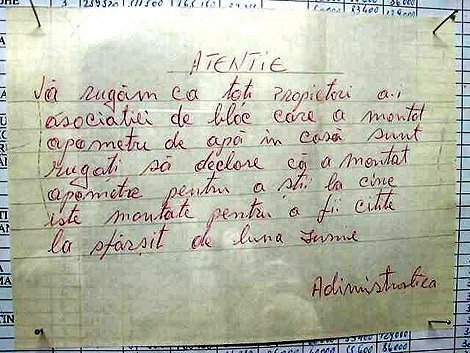 ATENTIE
Vă rugăm ca toti propietori a.i
asociatiei de bloc care a montat
apometru de apă in casă sunt
rugati să declore că a montat
apometre pentru a stii la cine
iste montate pentru a fii citite
la sfărșit de luna iunie
Adimistratica